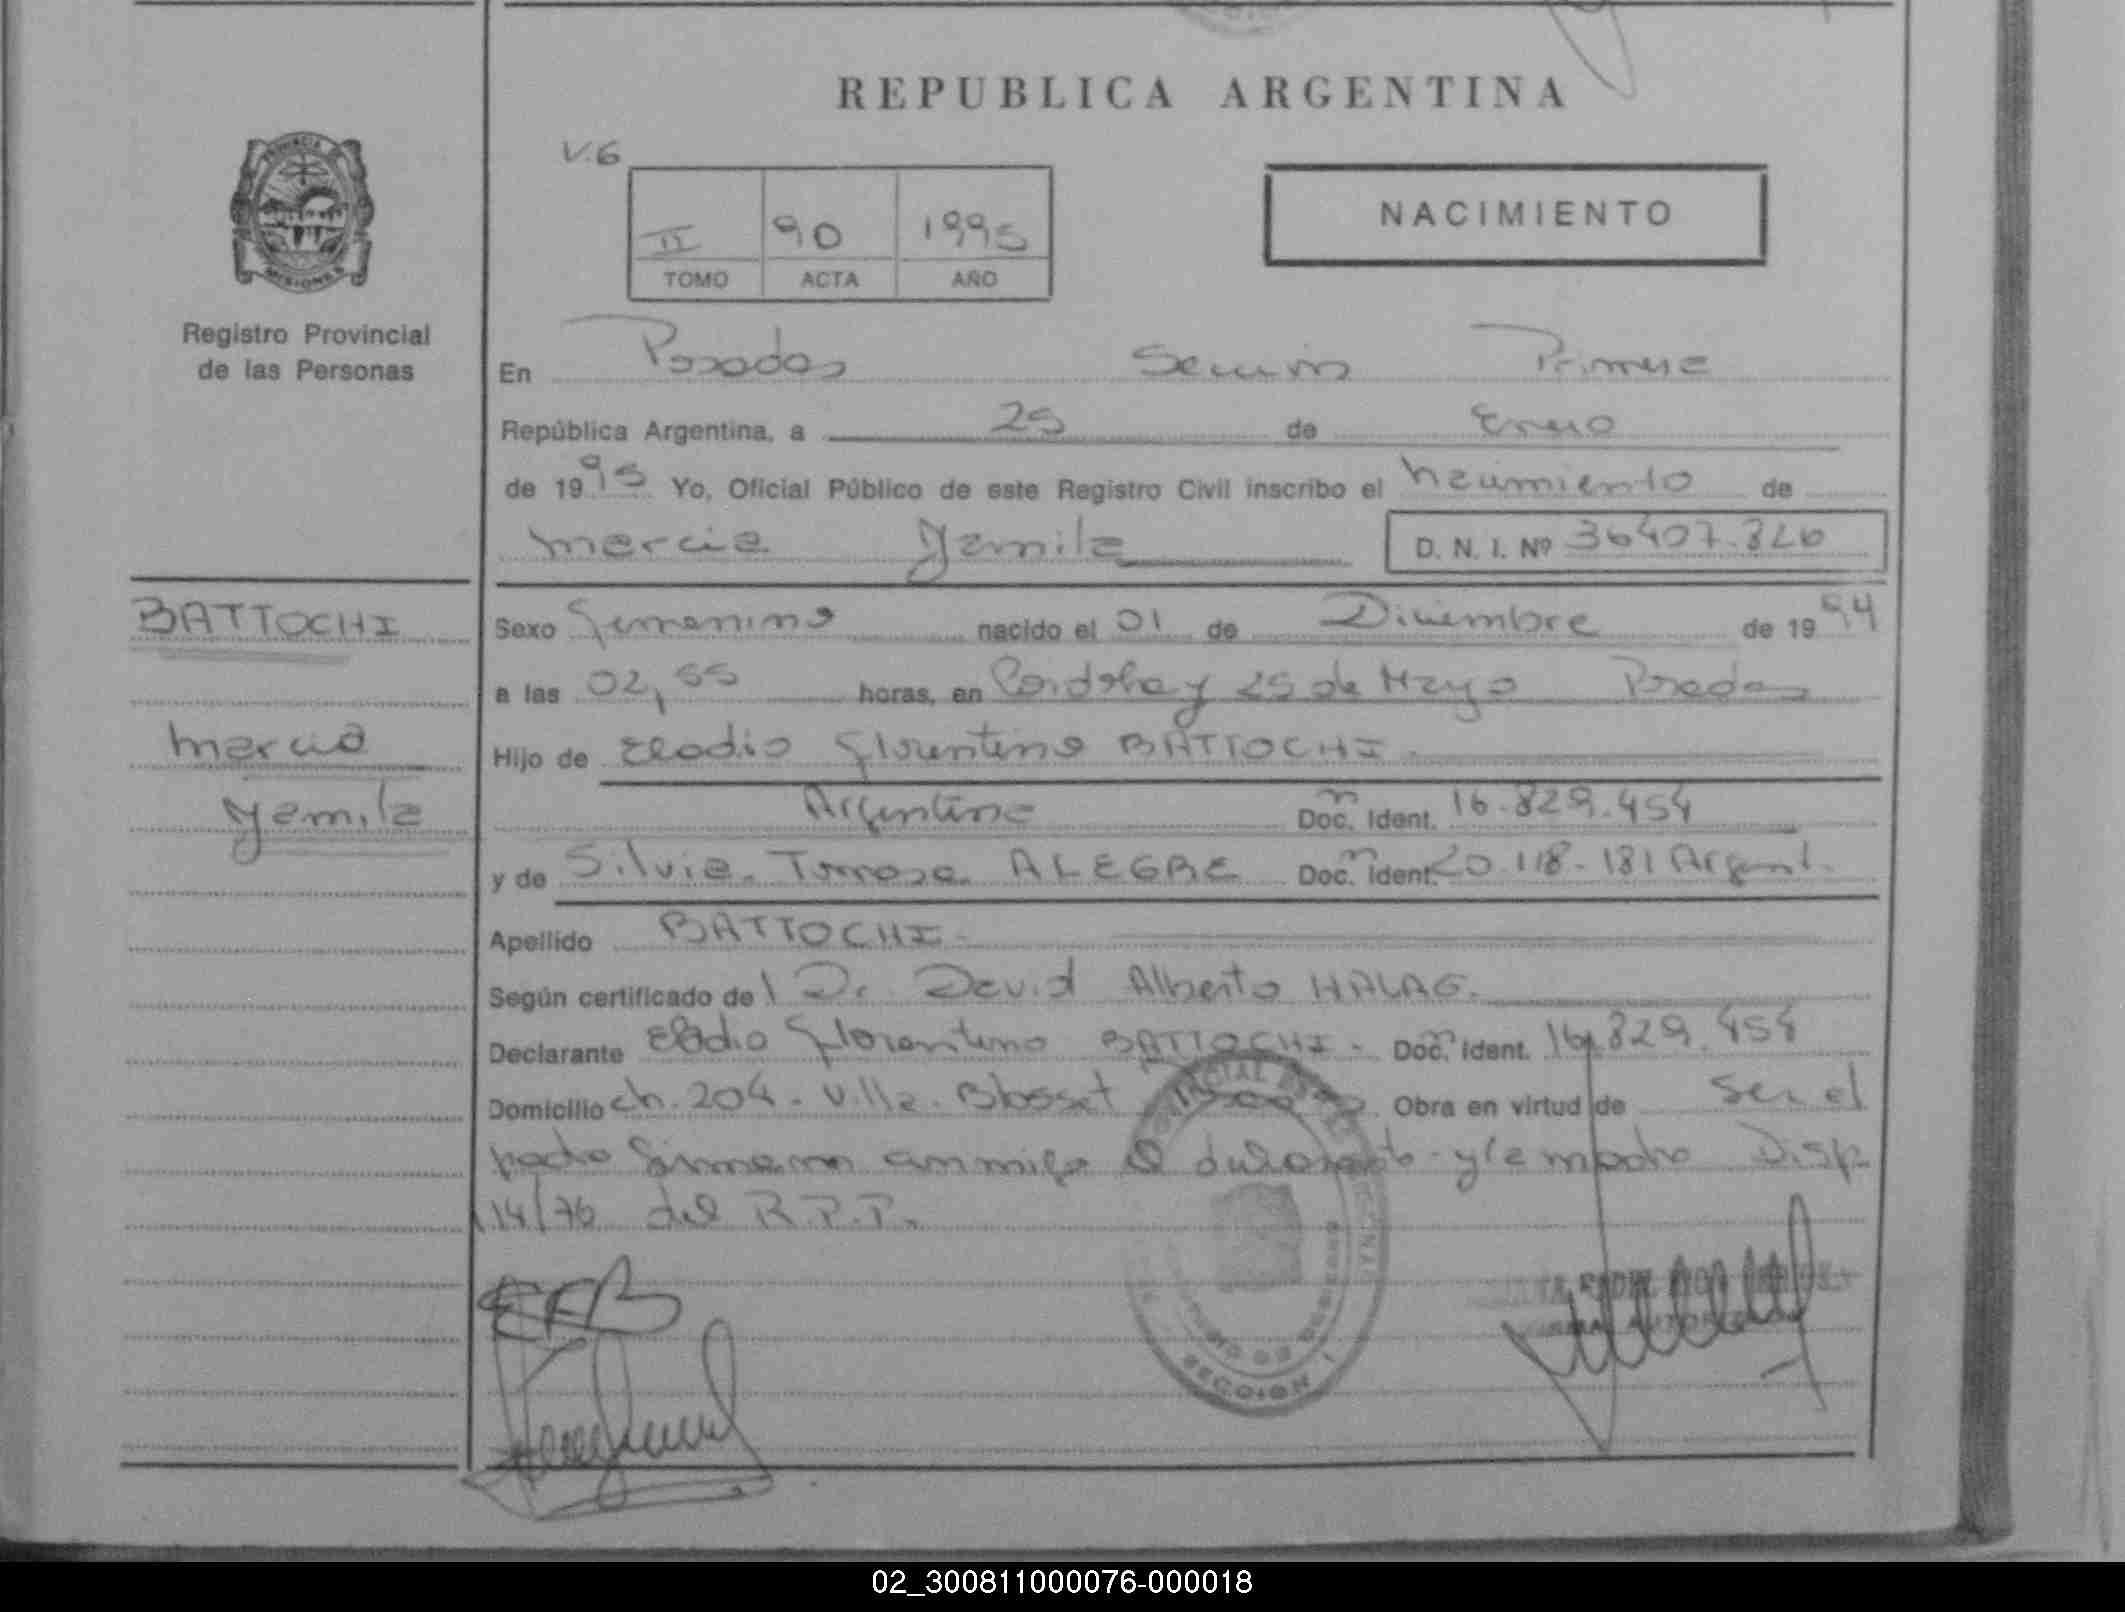 REPUBLICA ARGENTINA
V.6
II 90 1995
TOMO ACTA AÑO
NACIMIENTO
PROVINCIA DE
MISIONES
Registro Provincial
de las Personas
En Posadas Sección Primera
República Argentina, a 25 de Enero
de 1995 Yo, Oficial Público de este Registro Civil inscribo el nacimiento de
Marcia Yamila D. N. I. Nº 36407.826
BATTOCHI
Marcia
Yamila
Sexo Femenino nacido el 01 de Diciembre de 1994
a las 02,55 horas, en Córdoba y 25 de Mayo Posadas
Hijo de Eladio Florentino BATTOCHI.
Argentino Doc. Ident. 16.829.454
y de Silvia Teresa ALEGRE Doc. Ident. 20.118.181 Argent.
Apellido BATTOCHI.
Según certificado de l Dr. David Alberto HALAG.
Declarante Eladio Florentino BATTOCHI. Doc. Ident. 16.829.454
Domicilio ch. 204. Villa Blosset Obra en virtud de Ser el
padre Firman conmigo el declarante y la madre Disp.
14/76 del R.P.P.
EFB
SECCION 1
02_300811000076-000018